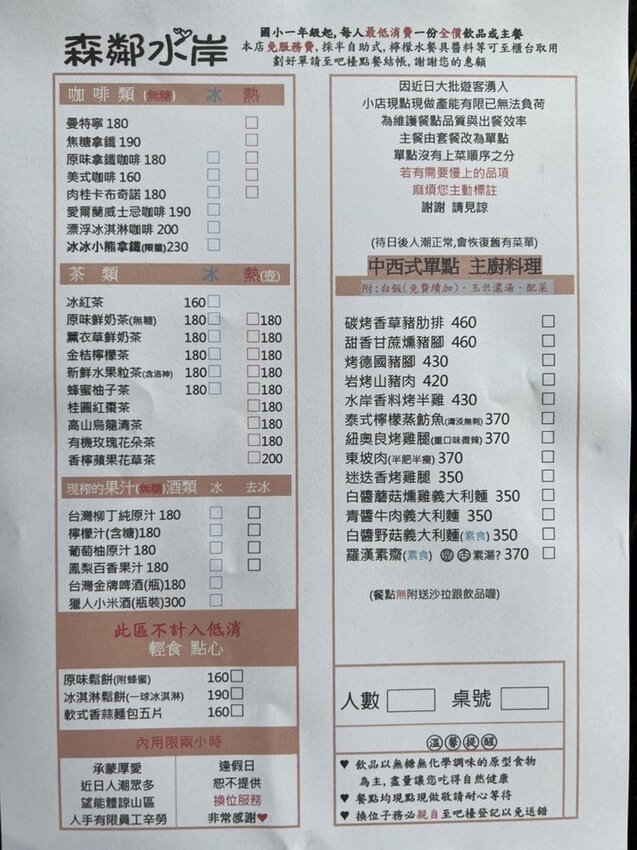 森鄰水岸
國小一年級起, 每人最低消費一份全價飲品或主餐
本店免服務費, 採半自助式, 檸檬水餐具醬料等可至櫃台取用
劃好單請至吧檯點餐結帳, 謝謝您的惠顧
咖啡類 (無糖) 冰 熱
曼特寧 180
焦糖拿鐵 190
原味拿鐵咖啡 180
美式咖啡 160
肉桂卡布奇諾 180
愛爾蘭威士忌咖啡 190
漂浮冰淇淋咖啡 200
冰冰小熊拿鐵(限量)230
茶 類 冰 熱(壺)
冰紅茶 160
原味鮮奶茶(無糖) 180 180
薰衣草鮮奶茶 180 180
金桔檸檬茶 180 180
新鮮水果粒茶(含洛神) 180 180
蜂蜜柚子茶 180 180
桂圓紅棗茶 180
高山烏龍清茶 180
有機玫瑰花朵茶 180
香檸蘋果花草茶 200
現榨的果汁(無糖)酒類 冰 去冰
台灣柳丁純原汁 180
檸檬汁(含糖)180
葡萄柚原汁 180
鳳梨百香果汁 180
台灣金牌啤酒(瓶)180
獵人小米酒(瓶裝)300
此區不計入低消
輕食 點心
原味鬆餅(附蜂蜜) 160
冰淇淋鬆餅(一球冰淇淋) 190
軟式香蒜麵包五片 160
內用限兩小時
承蒙厚愛
近日人潮眾多
望能體諒山區
人手有限員工辛勞
逢假日
恕不提供
換位服務
非常感謝♥
因近日大批遊客湧入
小店現點現做產能有限已無法負荷
為維護餐點品質與出餐效率
主餐由套餐改為單點
單點沒有上菜順序之分
若有需要慢上的品項
麻煩您主動標註
謝謝 請見諒
(待日後人潮正常,會恢復舊有菜單)
中西式單點 主廚料理
附:白飯(免費續加)·玉米濃湯·配菜
碳烤香草豬肋排 460
甜香甘蔗燻豬腳 460
烤德國豬腳 430
岩烤山豬肉 420
水岸香料烤半雞 430
泰式檸檬蒸魴魚(清淡無刺)370
紐奧良烤雞腿(重口味微辣)370
東坡肉(半肥半瘦) 370
迷迭香烤雞腿 350
白醬蘑菇燻雞義大利麵 350
青醬牛肉義大利麵 350
白醬野菇義大利麵(素食) 350
羅漢素齋(素食) 是 否 素湯? 370
(餐點無附送沙拉跟飲品喔)
人數 桌號
溫馨提醒
♥ 飲品以無糖無化學調味的原型食物
為主, 盡量讓您吃得自然健康
♥ 餐點均現點現做敬請耐心等待
♥ 換位子務必親自至吧檯登記以免送錯